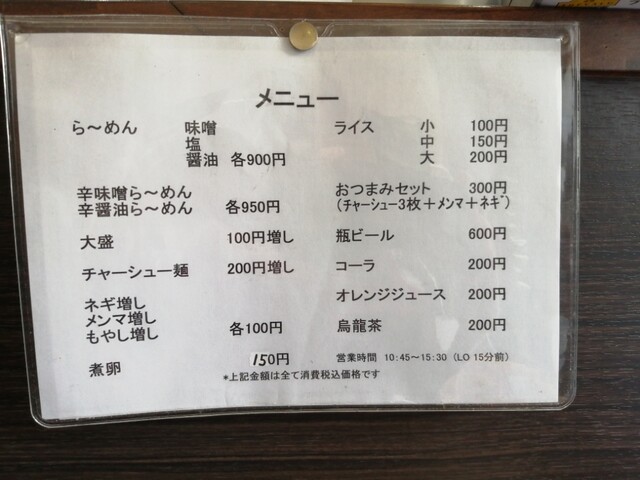 メニュー
ら～めん 味噌
塩
醤油 各900円
辛味噌ら～めん
辛醤油ら～めん 各950円
大盛 100円増し
チャーシュー麺 200円増し
ネギ増し
メンマ増し
もやし増し 各100円
煮卵 150円
ライス 小 100円
中 150円
大 200円
おつまみセット 300円
(ﾁｬｰｼｭｰ3枚＋ﾒﾝﾏ＋ﾈｷﾞ)
瓶ビール 600円
コーラ 200円
オレンジジュース 200円
烏龍茶 200円
営業時間 10:45～15:30 (LO 15分前)
*上記金額は全て消費税込価格です